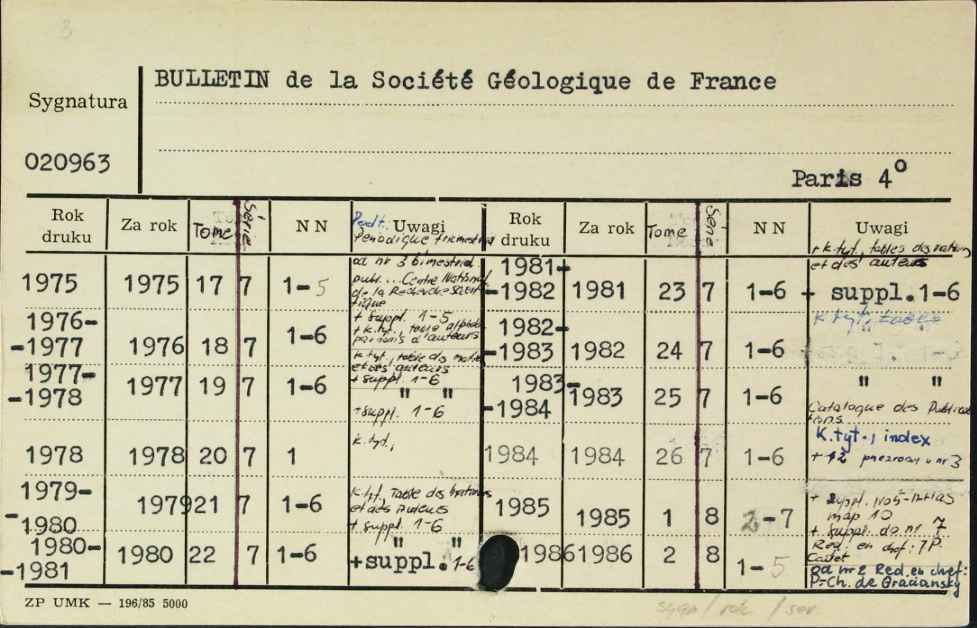 3
BULLETIN de la Société Géologique de France
Sygnatura
020963
Paris 4°
Rok druku Za rok Tome Série NN Uwagi Rok druku Za rok Tome Série NN Uwagi
Périodique trimestriel
od nr 3 bimestriel
publ... Centre National
de la Recherche Scien-
tifique
1975 1975 17 7 1-5
+ suppl. 1-5
1976-
-1977 1976 18 7 1-6
+ k.tyt., table
d'auteurs
1977-
-1978 1977 19 7 1-6
k.tyt., table des
et des auteurs
+ suppl. 1-6
" "
+suppl. 1-6
1978 1978 20 7 1
k.tyt.,
1979-
-1980 1979 21 7 1-6
k.tyt., Table des
et des Auteurs
+ suppl. 1-6
1980-
-1981 1980 22 7 1-6
" "
+suppl. 1-6
+ k.tyt., tables des
et des auteurs
1981-
-1982 1981 23 7 1-6 + suppl. 1-6
k.tyt.,
1982-
-1983 1982 24 7 1-6
1983-
-1984 1983 25 7 1-6
" "
Catalogue des Publica
tions
1984 1984 26 7 1-6
K.tyt., index
1985 1985 1 8 2-7
map 10
+ suppl. do nr 7
Red. en chef: JP.
1986 1986 2 8 1-5
od nr 2 Red. en chef:
P-Ch. de Graciansky
ZP UMK — 196/85 5000